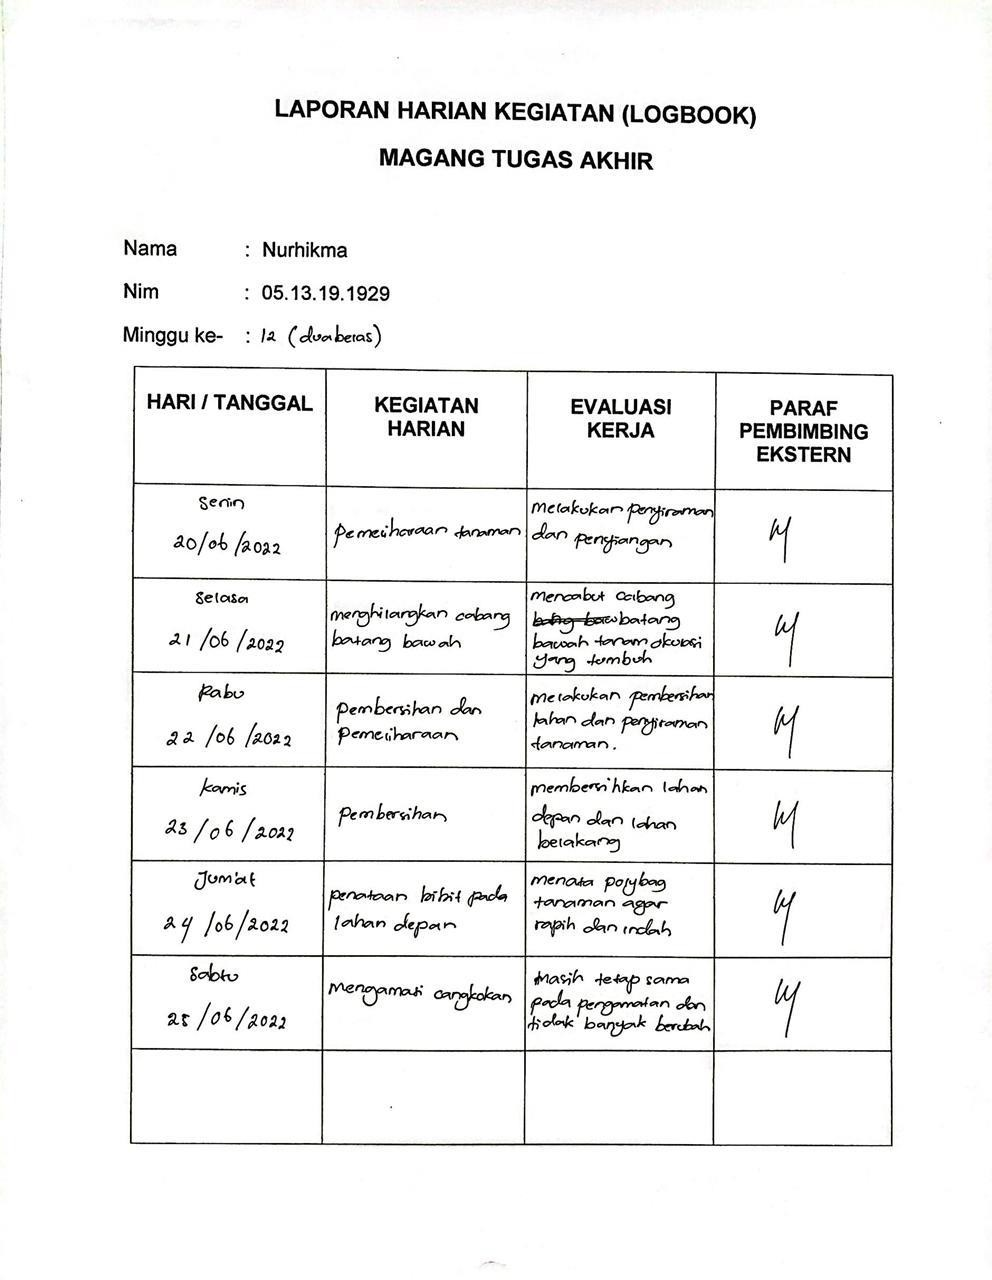 LAPORAN HARIAN KEGIATAN (LOGBOOK)
MAGANG TUGAS AKHIR
Nama : Nurhikma
Nim : 05.13.19.1929
Minggu ke- : 12 (duabelas)
HARI / TANGGAL
KEGIATAN
HARIAN
EVALUASI
KERJA
PARAF
PEMBIMBING
EKSTERN
Senin
20/06/2022
Pemeliharaan tanaman
melakukan penyiraman
dan penyiangan
Selasa
21/06/2022
menghilangkan cabang
batang bawah
mencabut cabang
batang
bawah tanam okulasi
yang tumbuh
Rabu
22/06/2022
Pembersihan dan
Pemeliharaan
melakukan pembersihan
lahan dan penyiraman
tanaman.
kamis
23/06/2022
Pembersihan
membersihkan lahan
depan dan lahan
belakang
Jum'at
24/06/2022
penataan bibit pada
lahan depan
menata polybag
tanaman agar
rapih dan indah
Sabtu
25/06/2022
Mengamati cangkokan
Masih tetap sama
pada pengamatan dan
tidak banyak berubah